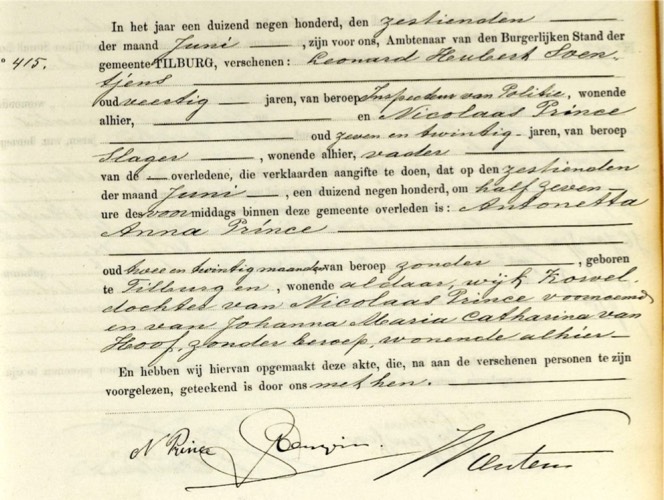 In het jaar een duizend negen honderd, den zestienden
der maand Juni, zijn voor ons, Ambtenaar van den Burgerlijken Stand der
° 415.
gemeente TILBURG, verschenen: Leonard Hubert Soen-
tjens
oud veertig jaren, van beroep Inspecteur van Politie, wonende
alhier, en Nicolaas Prince
oud zeven en twintig jaren, van beroep
Slager, wonende alhier, vader
van de overledene, die verklaarden aangifte te doen, dat op den zestienden
der maand Juni, een duizend negen honderd, om half zeven
ure des voormiddags binnen deze gemeente overleden is: Antonetta
Anna Prince
oud twee en twintig maanden van beroep zonder, geboren
te Tilburg en, wonende aldaar, wijk Korvel
dochter van Nicolaas Prince voornoemd
en van Johanna Maria Catharina van
Hoof, zonder beroep, wonende alhier
En hebben wij hiervan opgemaakt deze akte, die, na aan de verschenen personen te zijn
voorgelezen, geteekend is door ons met hen.
N Prince